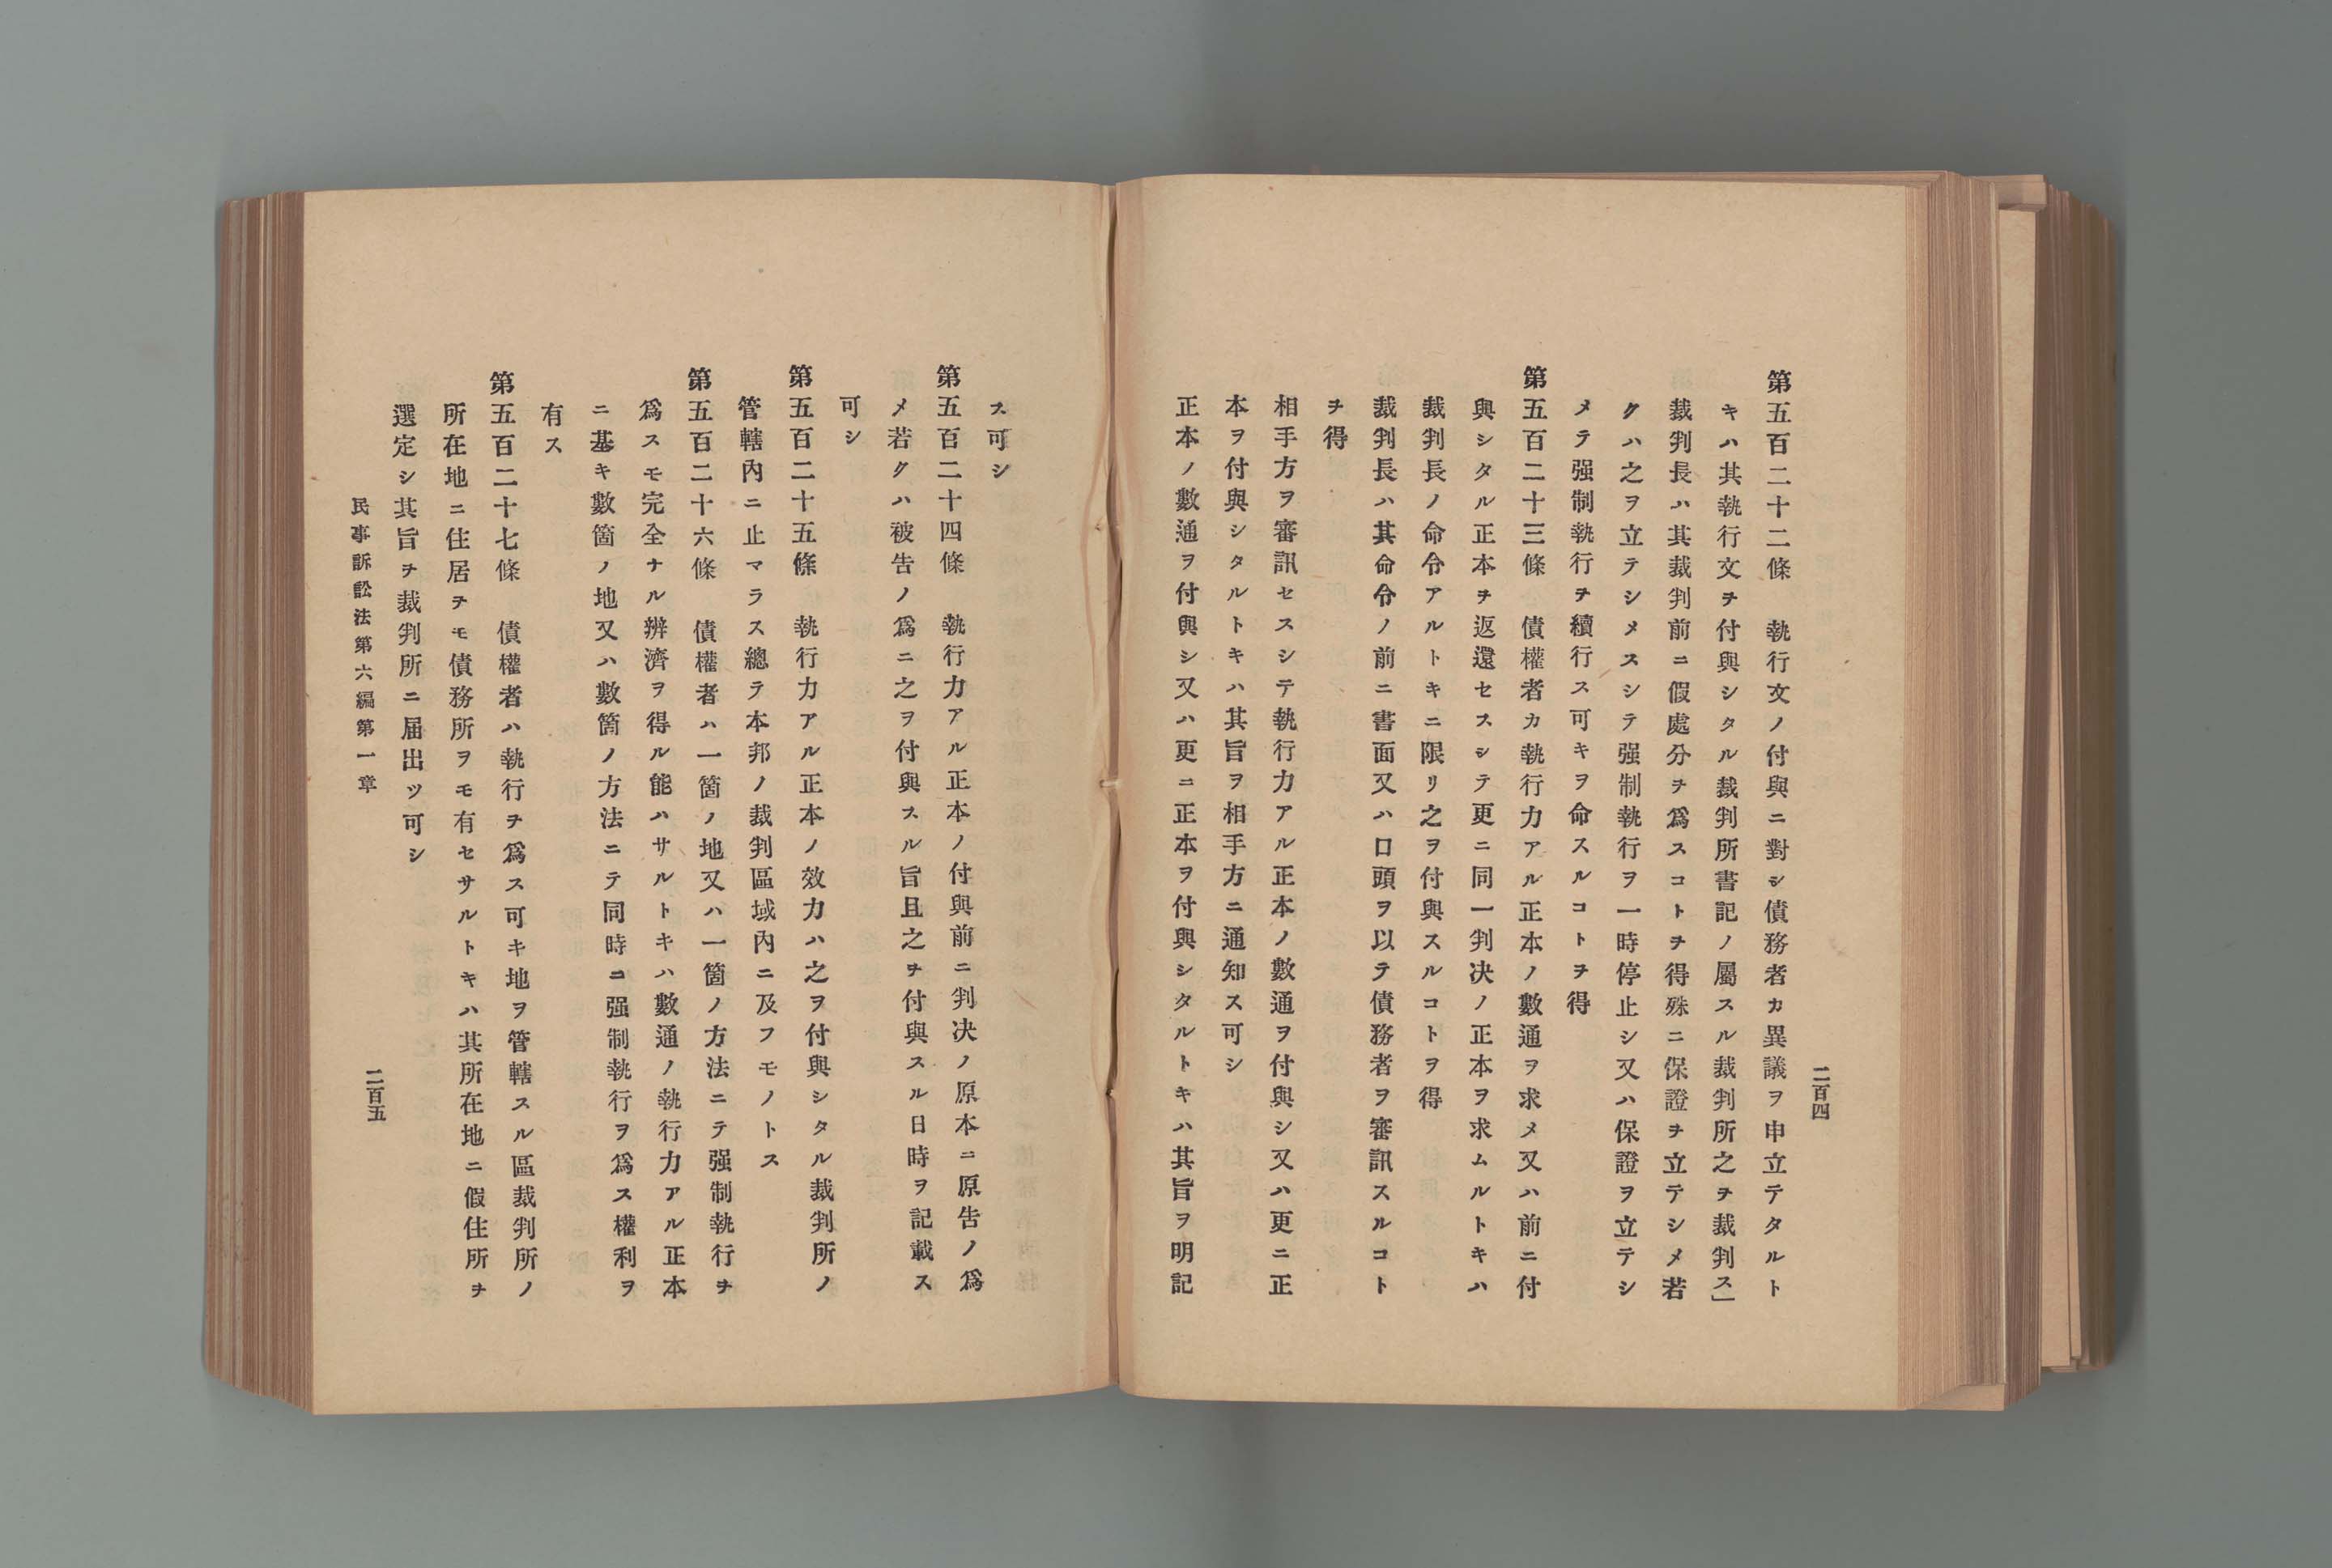 二百四
第五百二十二條　執行文ノ付與ニ對シ債務者カ異議ヲ申立テタルト
キハ其執行文ヲ付與シタル裁判所書記ノ屬スル裁判所之ヲ裁判ス」
裁判長ハ其裁判前ニ假處分ヲ爲スコトヲ得殊ニ保證ヲ立テシメ若
クハ之ヲ立テシメスシテ强制執行ヲ一時停止シ又ハ保證ヲ立テシ
メテ强制執行ヲ續行ス可キヲ命スルコトヲ得
第五百二十三條　債權者カ執行力アル正本ノ數通ヲ求メ又ハ前ニ付
與シタル正本ヲ返還セスシテ更ニ同一判决ノ正本ヲ求ムルトキハ
裁判長ノ命令アルトキニ限リ之ヲ付與スルコトヲ得
裁判長ハ其命令ノ前ニ書面又ハ口頭ヲ以テ債務者ヲ審訊スルコト
ヲ得
相手方ヲ審訊セスシテ執行力アル正本ノ數通ヲ付與シ又ハ更ニ正
本ヲ付與シタルトキハ其旨ヲ相手方ニ通知ス可シ
正本ノ數通ヲ付與シ又ハ更ニ正本ヲ付與シタルトキハ其旨ヲ明記
ス可シ
第五百二十四條　執行力アル正本ノ付與前ニ判决ノ原本ニ原告ノ爲
メ若クハ被告ノ爲ニ之ヲ付與スル旨且之ヲ付與スル日時ヲ記載ス
可シ
第五百二十五條　執行力アル正本ノ效力ハ之ヲ付與シタル裁判所ノ
管轄內ニ止マラス總テ本邦ノ裁判區域內ニ及フモノトス
第五百二十六條　債權者ハ一箇ノ地又ハ一箇ノ方法ニテ强制執行ヲ
爲スモ完全ナル辨濟ヲ得ル能ハサルトキハ數通ノ執行力アル正本
ニ基キ數箇ノ地又ハ數箇ノ方法ニテ同時ニ强制執行ヲ爲ス權利ヲ
有ス
第五百二十七條　債權者ハ執行ヲ爲ス可キ地ヲ管轄スル區裁判所ノ
所在地ニ住居ヲモ債務所ヲモ有セサルトキハ其所在地ニ假住所ヲ
選定シ其旨ヲ裁判所ニ届出ツ可シ
民事訴訟法第六編第一章
二百五